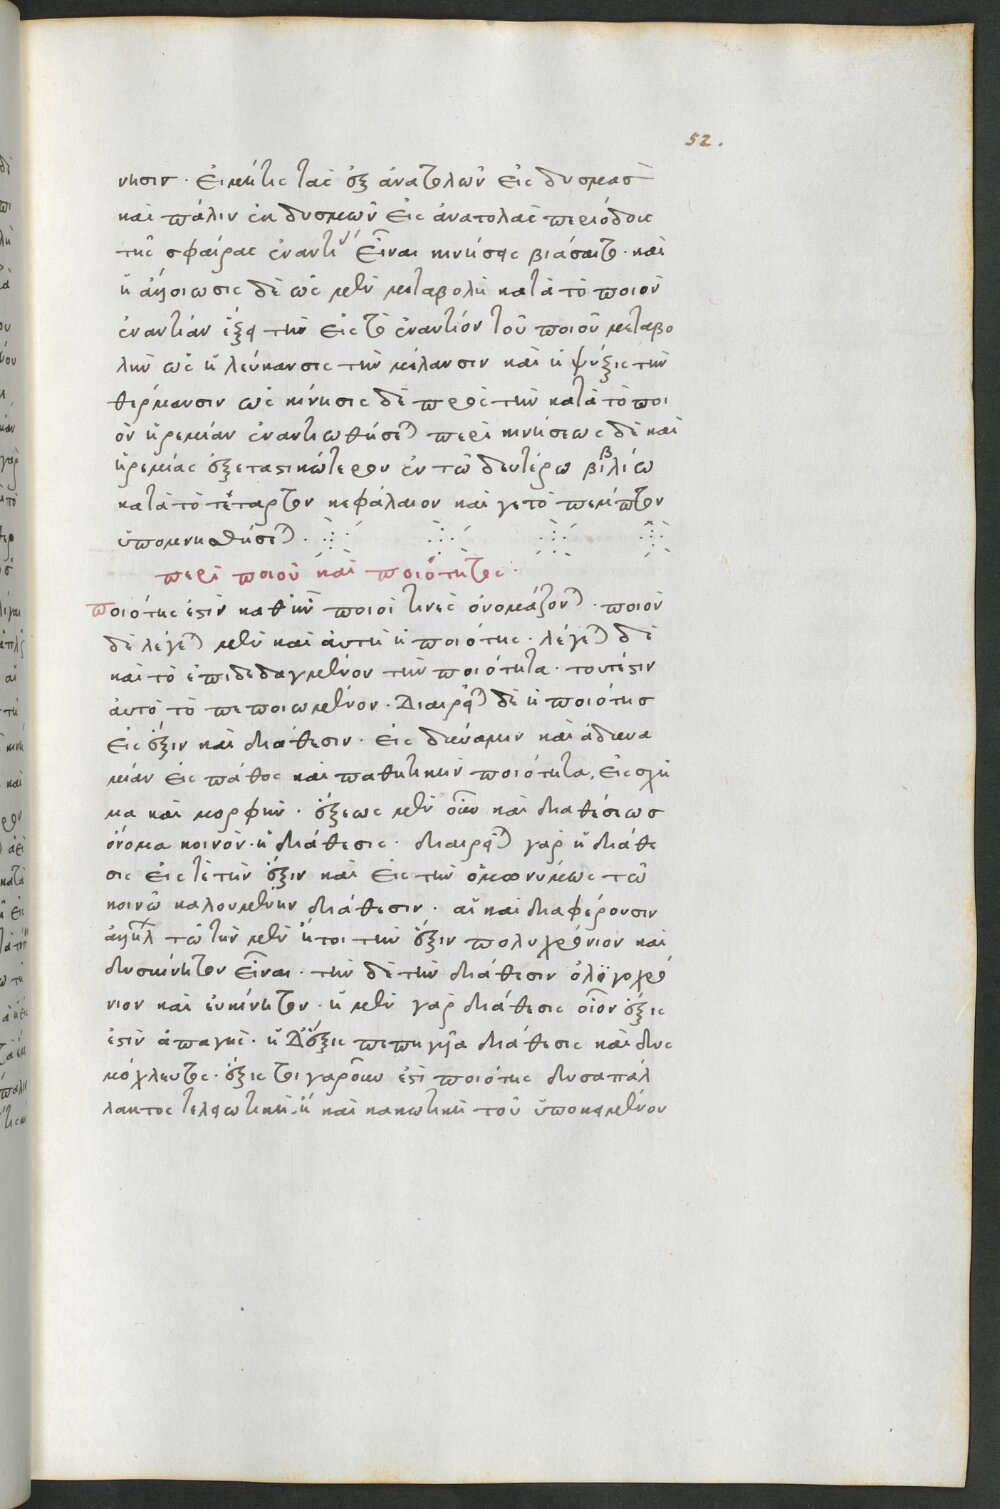 52.
νησιν· εἰ μή τις τὰς ἐξ ἀνατολῶν εἰς δυσμὰσ
καὶ πάλιν ἐκ δυσμῶν εἰς ἀνατολὰς περιόδους
τῆς σφαίρας ἐναντί εἶναι κινήσεις βιάσαιτο· καὶ
ἡ ἀλλοίωσις δὲ ὡς μὲν μεταβολὴ κατὰ τὸ ποιὸν
ἐναντίαν ἕξει τὴν εἰς τὸ ἐναντίον τοῦ ποιοῦ μεταβο
λὴν ὡς ἡ λεύκανσις τὴν μέλανσιν καὶ ἡ ψύξις τὴν
θέρμανσιν ὡς κίνησις δὲ πρὸς τὴν κατὰ τὸ ποι
ὸν ἠρεμίαν ἐναντιωθήσεται περὶ κινήσεως δὲ καὶ
ἠρεμίας ἐξεταστικώτερον ἐν τῶ δευτέρω βιβλίω
κατὰ τὸ τέταρτον κεφάλαιον καί γε τὸ πέμπτον
ὑπομνησθήσεται·
περὶ ποιοῦ καὶ ποιότητος·
ποιότης ἐστὶν καθ' ἣν ποιοί τινὲς ὀνομάζονται· ποιὸν
δὲ λέγεται μὲν καὶ αὐτὴ ἡ ποιότης· λέγεται δὲ
καὶ τὸ ἐπιδεδαγμένον τὴν ποιότητα· τουτέστιν
αὐτὸ τὸ πεποιωμένον· Διαιρεῖται δὲ ἡ ποιότησ
εἰς ἕξιν καὶ διάθεσιν· εἰς δύναμιν καὶ ἀδυνα
μίαν εἰς πάθος καὶ παθητικὴν ποιότητα, εἰς σχῆ
μα καὶ μορφήν· ἕξεως μὲν οὖν καὶ διαθέσεωσ
ὄνομα κοινὸν· ἡ διάθεσις· διαιρεῖται γὰρ ἡ διάθε
σις εἴς τε τὴν ἕξιν καὶ εἰς τὴν ὁμωνύμως τῶ
κοινῶ καλουμένην διάθεσιν· αἳ καὶ διαφέρουσιν
ἀλλήλων τῶ τὴν μὲν ἤτοι τὴν ἕξιν πολυχρόνιον καὶ
δυσκίνητον εἶναι· τὴν δὲ τὴν διάθεσιν ὀλιγοχρό
νιον καὶ εὐκίνητον· ἡ μὲν γὰρ διάθεσις οἷον ἕξις
ἐστὶν ἀπαγής· ἡ δ' ἕξις πεπηγυῖα διάθεσις καὶ δυς
μόχλευτος· ἕξις τοιγαροῦν ἐστὶ ποιότης δυσαπάλ
λακτος τελειωτικὴ ἢ καὶ κακωτικὴ τοῦ ὑποκειμένου